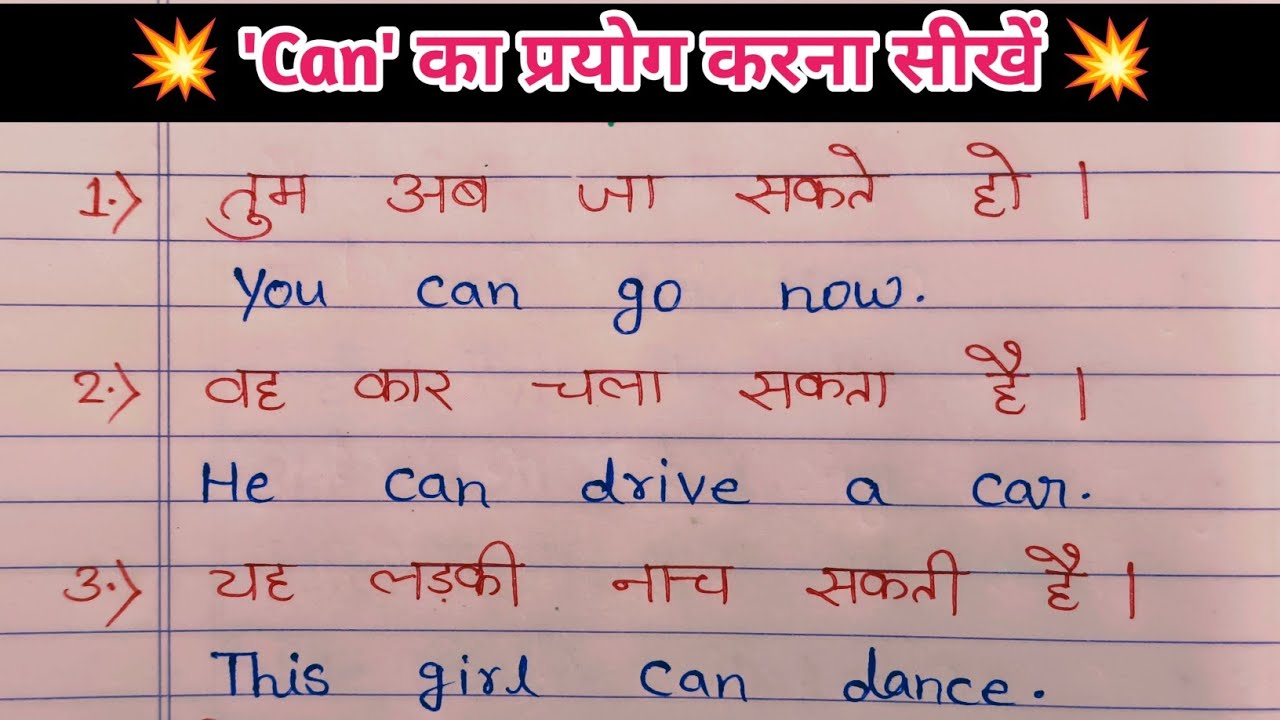 'Can' का प्रयोग करना सीखें
1.) तुम अब जा सकते हो ।
You can go now.
2.) वह कार चला सकता है ।
He can drive a car.
3.) यह लड़की नाच सकती है ।
This girl can dance.